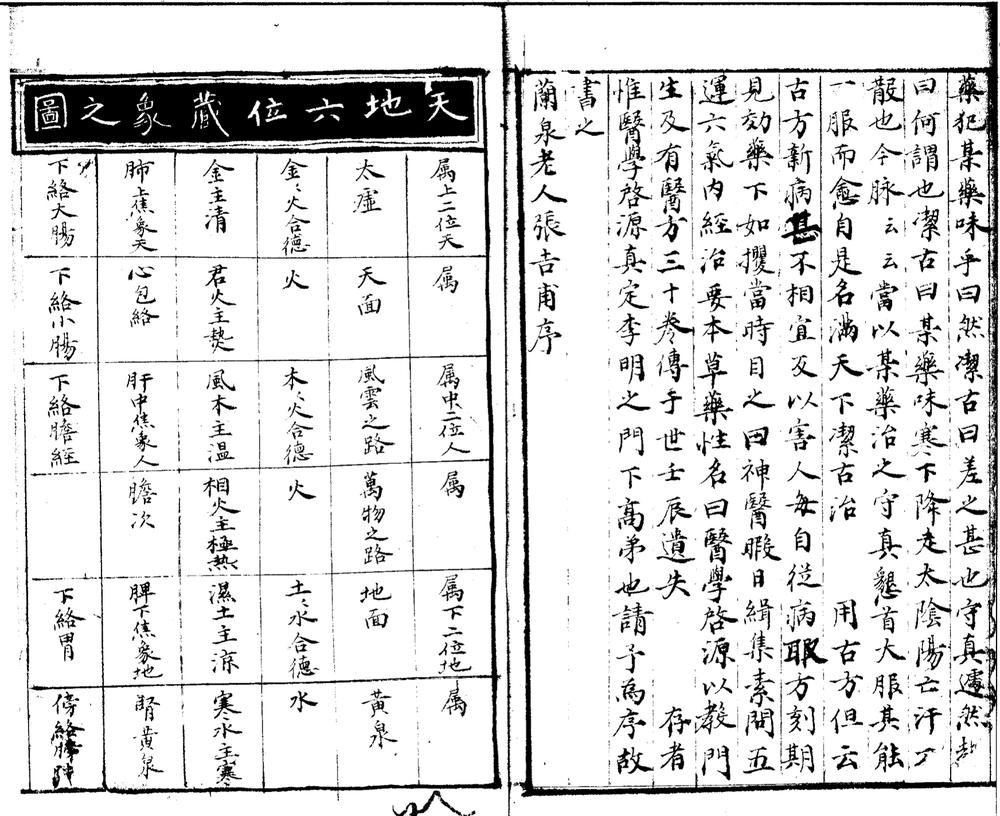 藥犯某藥味乎曰然潔古曰差之甚也守真遽然起
曰何謂也潔古曰某藥味寒下降走太陰陽亡汗不
散也今脉云云當以某藥治之守真懇首大服其能
一服而愈自是名滿天下潔古治 用古方但云
古方新病甚不相宜反以害人每自從病 方刻期
見効藥下如攫當時目之曰神醫暇日緝集素問五
運六氣内經治要本草藥性名曰醫學啓源以教門
生及有醫方三十卷傳于世壬辰遺失 存者
惟醫學啓源真定李明之門下高弟也請予為序故
書之
蘭泉老人張吉甫序
天地六位藏象之圖
属上二位天 属 属中二位人 属 属下二位地 属
太虚 天面 風雲之路 萬物之路 地面 黄泉
金〻火合德 火 木〻火合德 火 土〻水合德 水
金主清 君火主熱 風木主温 相火主極熱 濕土主凉 寒水主寒
肺上焦象天 心包絡 肝中焦象人 膽次 脾下焦象地 腎黄泉
下絡大腸 下絡小腸 下絡膽經 下絡胃 傍絡